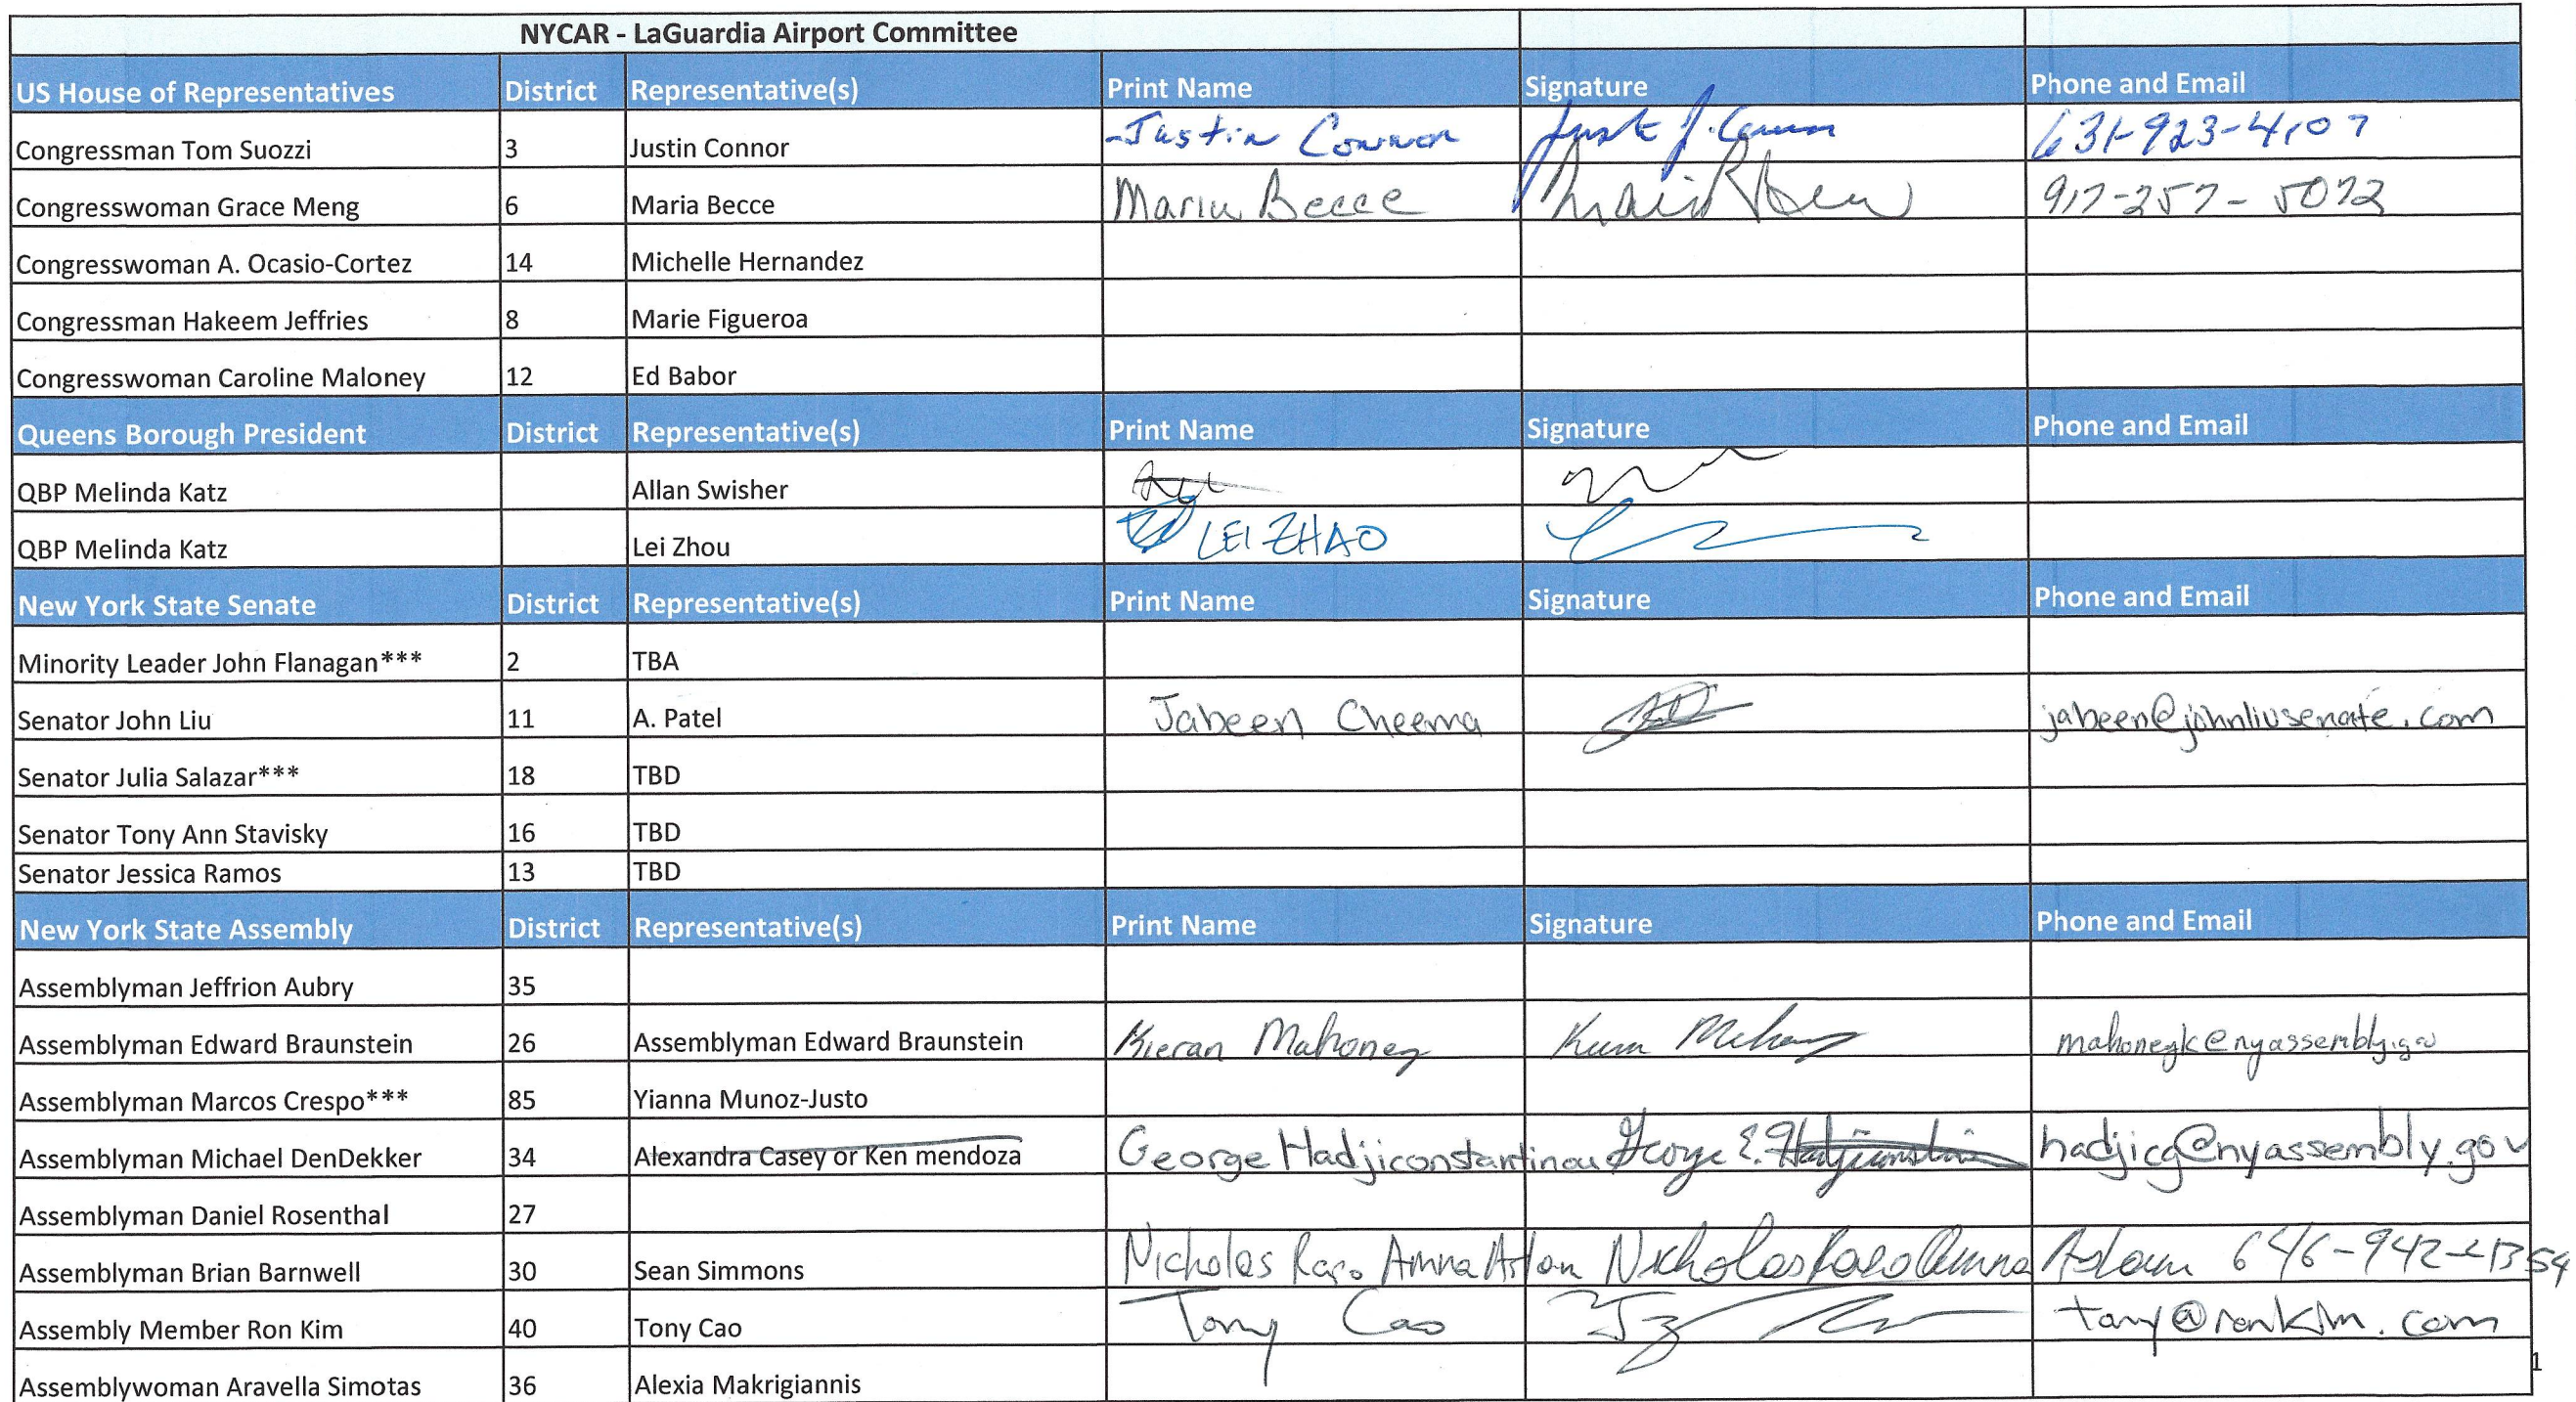 NYCAR - LaGuardia Airport Committee
US House of Representatives District Representative(s) Print Name Signature Phone and Email
Congressman Tom Suozzi 3 Justin Connor Justin Connor 631-923-4107
Congresswoman Grace Meng 6 Maria Becce Maria Becce 917-257-5072
Congresswoman A. Ocasio-Cortez 14 Michelle Hernandez
Congressman Hakeem Jeffries 8 Marie Figueroa
Congresswoman Caroline Maloney 12 Ed Babor
Queens Borough President District Representative(s) Print Name Signature Phone and Email
QBP Melinda Katz Allan Swisher
QBP Melinda Katz Lei Zhou LEI ZHAO
New York State Senate District Representative(s) Print Name Signature Phone and Email
Minority Leader John Flanagan*** 2 TBA
Senator John Liu 11 A. Patel Jabeen Cheema jabeen@johnliusenate.com
Senator Julia Salazar*** 18 TBD
Senator Tony Ann Stavisky 16 TBD
Senator Jessica Ramos 13 TBD
New York State Assembly District Representative(s) Print Name Signature Phone and Email
Assemblyman Jeffrion Aubry 35
Assemblyman Edward Braunstein 26 Assemblyman Edward Braunstein Kieran Mahoney mahoneyk@nyassembly.gov
Assemblyman Marcos Crespo*** 85 Yianna Munoz-Justo
Assemblyman Michael DenDekker 34 Alexandra Casey or Ken mendoza George Hadjiconstantinou George E. hadjicg@nyassembly.gov
Assemblyman Daniel Rosenthal 27
Assemblyman Brian Barnwell 30 Sean Simmons Nicholas Raso Amna Aslam Nicholas Raso Amna Aslam 646-942-
Assembly Member Ron Kim 40 Tony Cao Tony Cao tony@ronkim.com
1
Assemblywoman Aravella Simotas 36 Alexia Makrigiannis